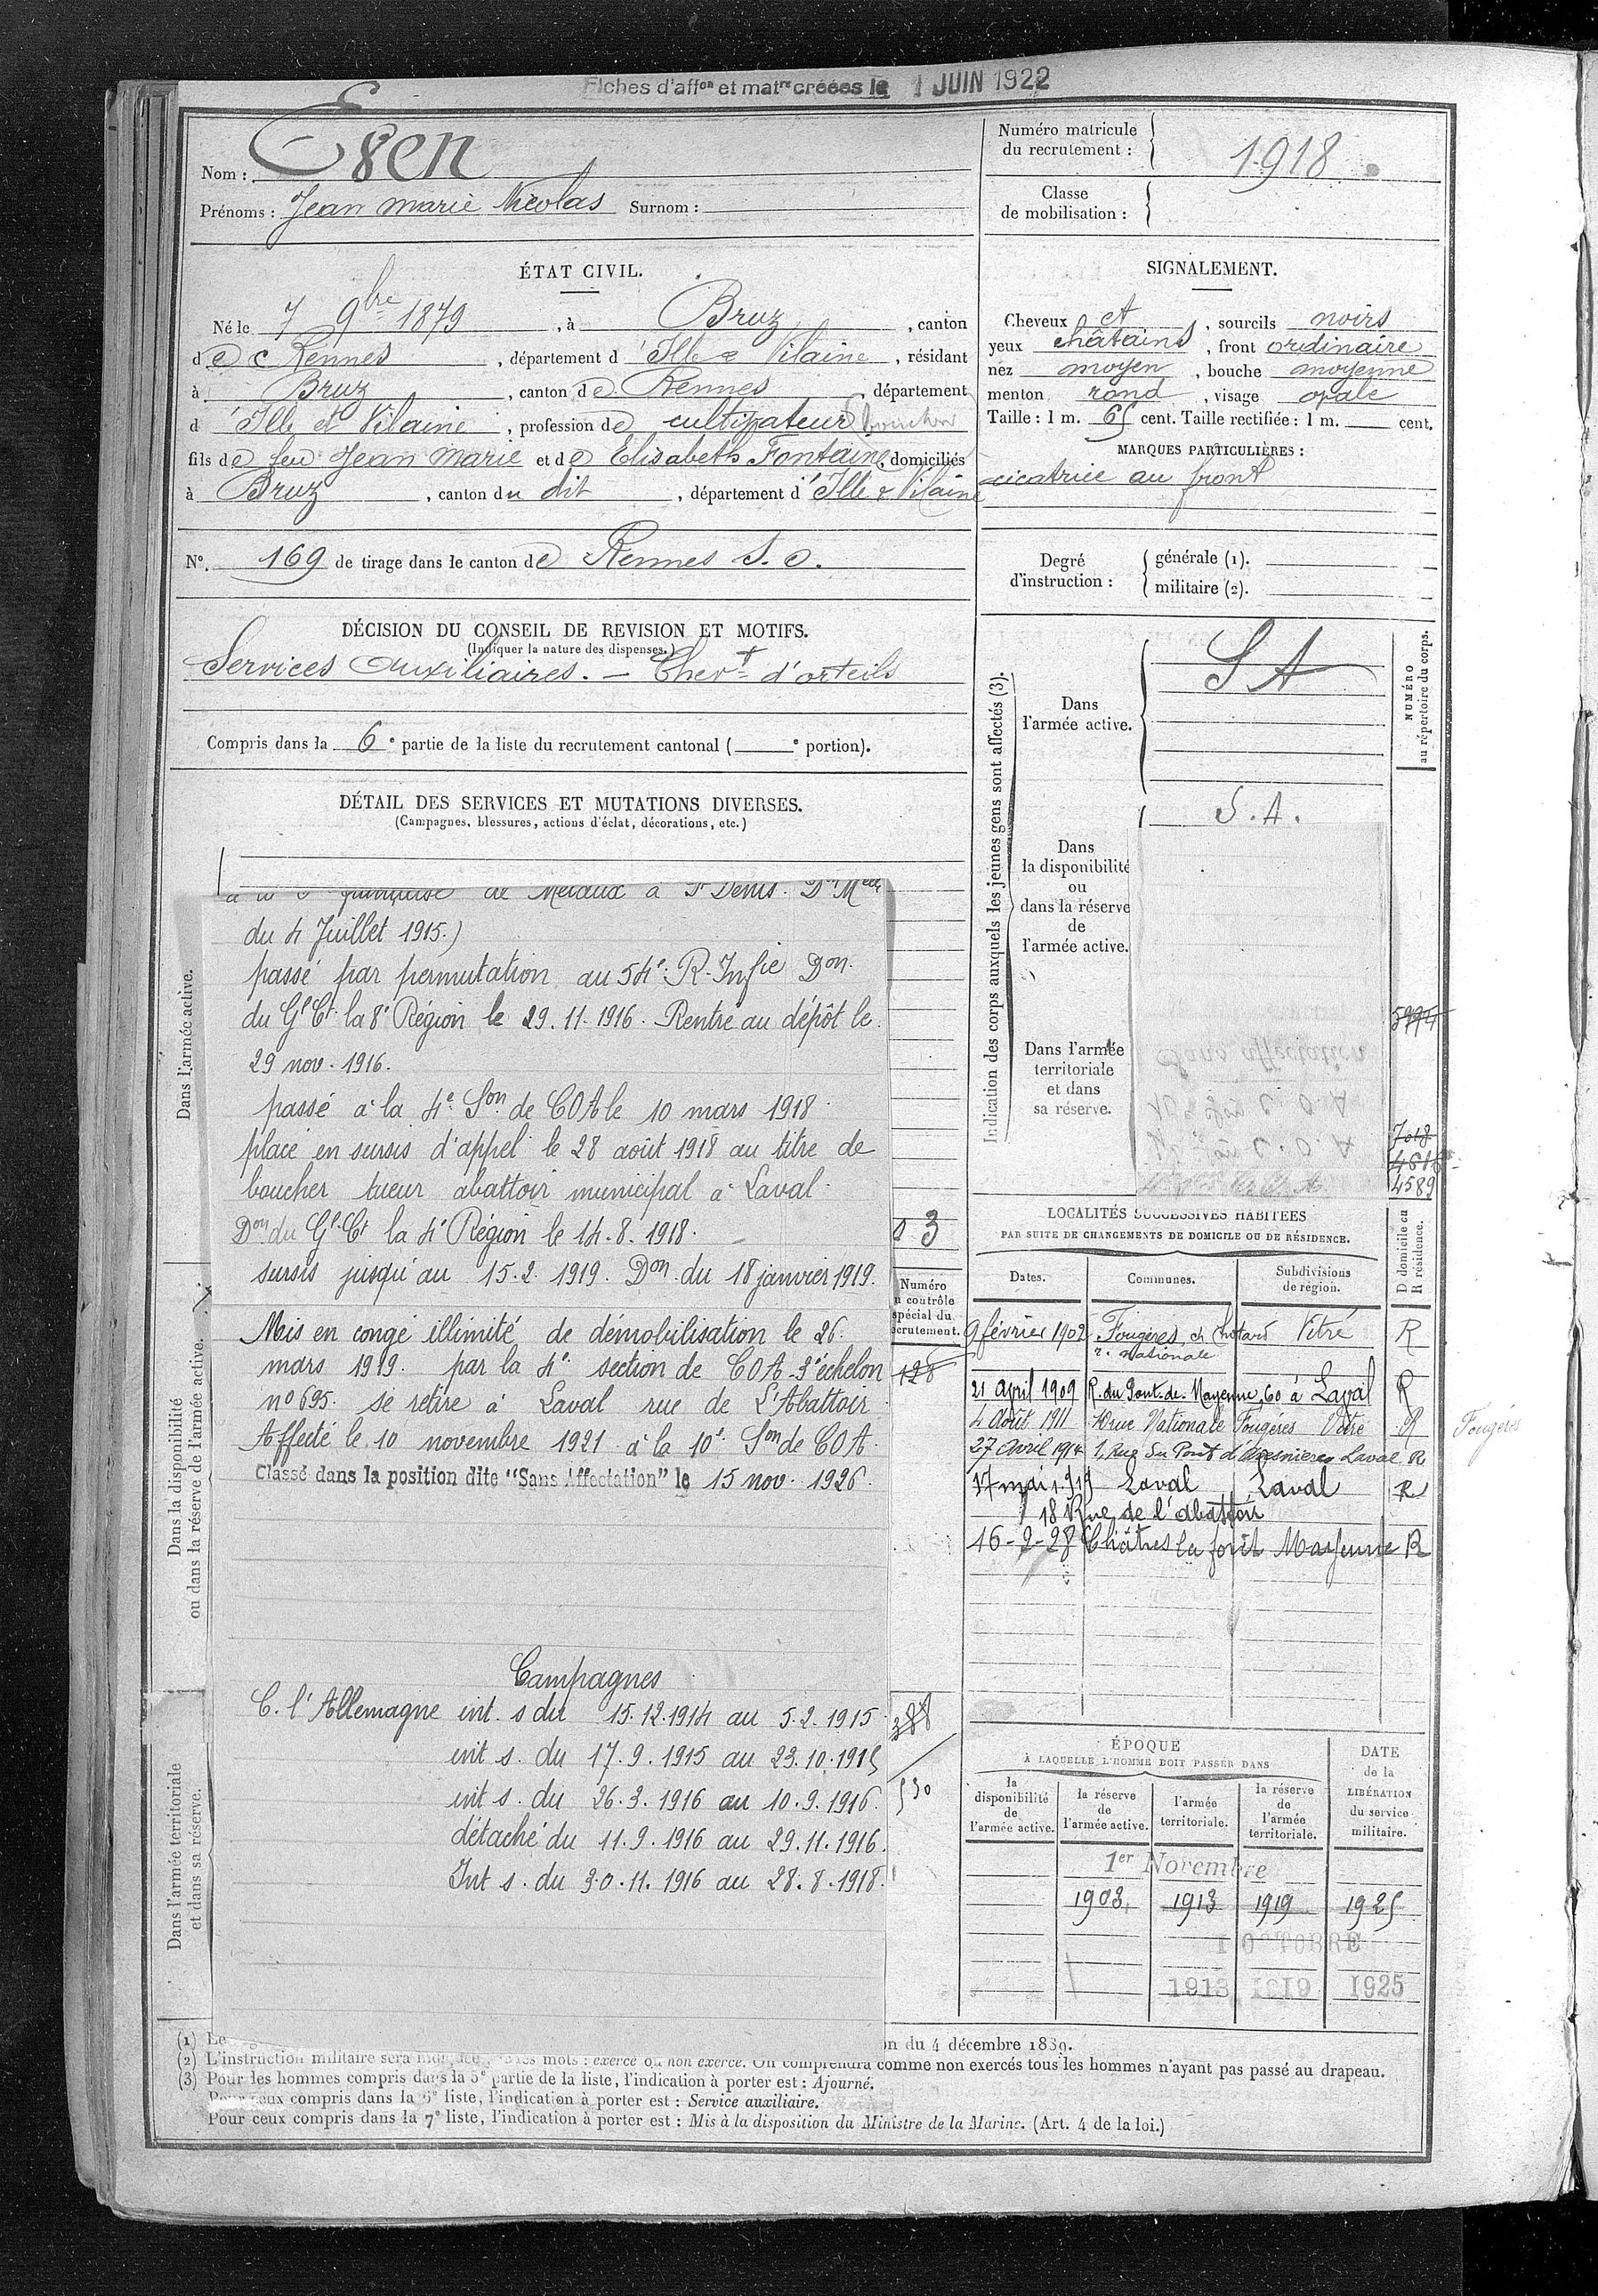 Fiches d'affon et matre créées le 1 JUIN 1922
Nom :
Prénoms : Jean marie Nicolas Surnom :
Numéro matricule du recrutement : 1918
Classe de mobilisation :
ÉTAT CIVIL.
Né le 7 9bre 1879, à Bruz, canton
de Rennes, département d'Ille & Vilaine, résidant
à Bruz, canton de Rennes, département
d'Ille et Vilaine, profession de cultivateur
fils de feu Jean marie et de Elisabeth Fontaine, domiciliés
à Bruz, canton du dit, département d'Ille & Vilaine
SIGNALEMENT.
Cheveux et, sourcils noirs
yeux châtains, front ordinaire
nez moyen, bouche moyenne
menton rond, visage ovale
Taille : 1 m. 65 cent. Taille rectifiée : 1 m. cent.
MARQUES PARTICULIÈRES :
cicatrice au front
N°. 169 de tirage dans le canton de Rennes S.O.
Degré d'instruction :
générale (1).
militaire (2).
DÉCISION DU CONSEIL DE REVISION ET MOTIFS.
(Indiquer la nature des dispenses.)
Services Auxiliaires. — Chevt d'orteils
Compris dans la 6e partie de la liste du recrutement cantonal ( e portion).
DÉTAIL DES SERVICES ET MUTATIONS DIVERSES.
(Campagnes, blessures, actions d'éclat, décorations, etc.)
Dans l'armée active.
de Métaux à St Denis.
du 4 Juillet 1915.)
passé par permutation au 54e R. Infie Don
du Gl Ct la 8e Région le 29.11.1916. Rentré au dépôt le
29 nov. 1916.
passé à la 4e Son de COA le 10 mars 1918
placé en sursis d'appel le 28 août 1918 au titre de
boucher tueur abattoir municipal à Laval.
Don du Gl Ct la 4e Région le 14.8.1918.
sursis jusqu'au 15.2.1919. Don du 18 janvier 1919.
Mis en congé illimité de démobilisation le 26
mars 1919. par la 4e section de COA 3e échelon
no 695. se retire à Laval rue de L'Abattoir
Affecté le 10 novembre 1921 à la 10e Son de COA.
Classé dans la position dite "Sans Affectation" le 15 nov. 1926
Dans la disponibilité
ou dans la réserve de l'armée active.
Campagnes
C. l'Allemagne int. s du 15.12.1914 au 5.2.1915
int s. du 17.9.1915 au 23.10.1915
int s. du 26.3.1916 au 10.9.1916.
détaché du 11.9.1916 au 29.11.1916.
Int s. du 30.11.1916 au 28.8.1918.
Dans l'armée territoriale
et dans sa réserve.
Indication des corps auxquels les jeunes gens sont affectés (3).
Dans l'armée active. S A
Dans la disponibilité ou dans la réserve de l'armée active. S.A.
Dans l'armée territoriale et dans sa réserve.
NUMÉRO au répertoire du corps.
4589
3
Numéro
contrôle
spécial du
recrutement.
128
LOCALITÉS SUCCESSIVES HABITÉES
PAR SUITE DE CHANGEMENTS DE DOMICILE OU DE RÉSIDENCE.
D domicile ou R résidence.
Dates. Communes. Subdivisions de région.
9 février 1902 Fougères Vitré R
r. Nationale
21 April 1909 R. du Pont-de-Mayenne, 60 à Laval R
4 Août 1911 rue Nationale Fougères Vitré R
Fougères
27 Avril 1914 1, Rue du Pont Laval R
17 mai 1919 Laval Laval R
18 Rue de l'abattoir
16-2-28 Châtres la forêt Mayenne R
ÉPOQUE
À LAQUELLE L'HOMME DOIT PASSER DANS
la disponibilité de l'armée active.
la réserve de l'armée active.
l'armée territoriale.
la réserve de l'armée territoriale.
DATE de la LIBÉRATION du service militaire.
1er Novembre
1903 1913 1919 1925
1 OCTOBRE
1913 1919 1925
(1) Le
on du 4 décembre 1889.
(2) L'instruction militaire sera indiquée les mots : exercé ou non exercé. On comprendra comme non exercés tous les hommes n'ayant pas passé au drapeau.
(3) Pour les hommes compris dans la 5e partie de la liste, l'indication à porter est : Ajourné.
Pour ceux compris dans la 6e liste, l'indication à porter est : Service auxiliaire.
Pour ceux compris dans la 7e liste, l'indication à porter est : Mis à la disposition du Ministre de la Marine. (Art. 4 de la loi.)